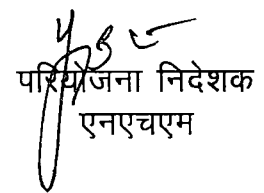 परियोजना निदेशक
एनएचएम